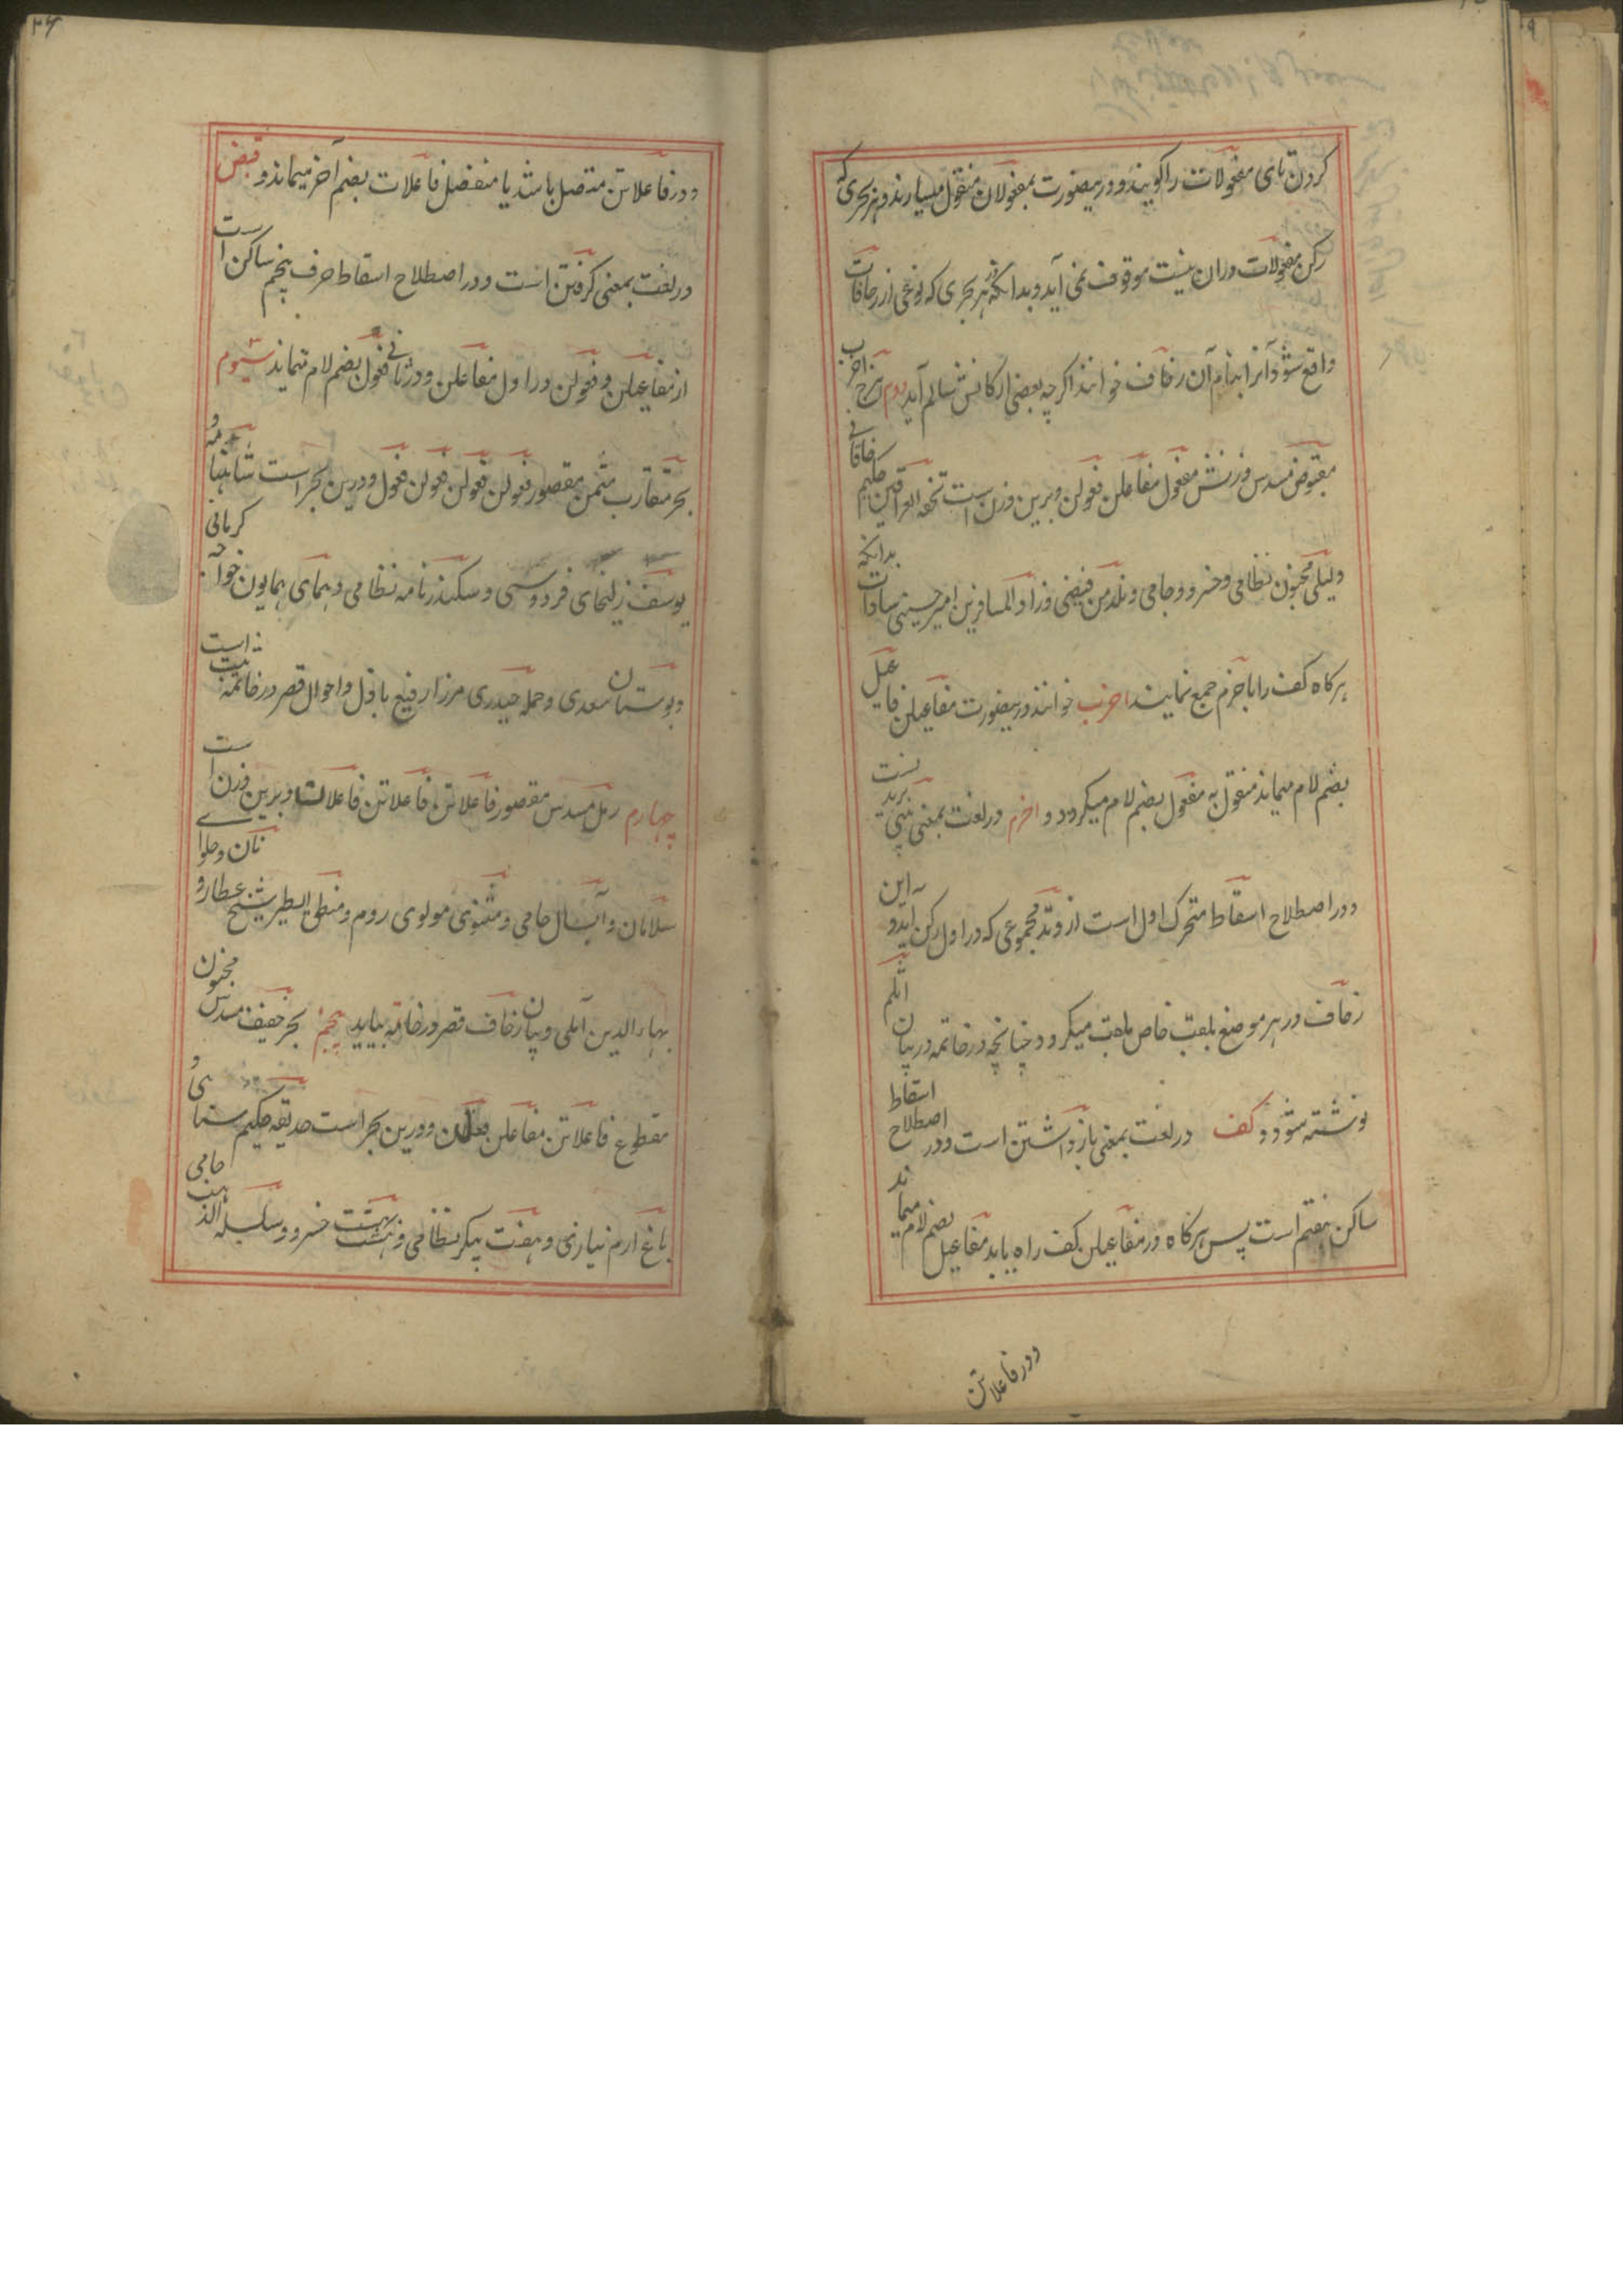 کردن تای مفعولات را گویند و درینصورت بمفعولان منقول میسازند و هر بحری که
رکن مفعولات دران نیست موقوف نمی آید و بدانکه در هر بحری که نوعی از زحافات
واقع شود آنرا بنام آن زحاف خوانند اگرچه بعضی ارکانش سالم آید دوم هزج اخرب
مقبوض مسدس وزنش مفعول مفاعلن فعولن و برین وزن است تحفه العراقین حکیم خاقانی
و لیلی مجنون نظامی و خسرو و جامی و نلدمن فیضی و زاد المسافرین امیر حسینی سادات بدانکه
هرکاه کف را با خرم جمع نمایند اخرب خوانند درینصورت مفاعیلن فاعیل
بضم لام میماند منقول به مفعول بضم لام میکردد و اخرم در لغت بمعنی بینی بریدنست
و در اصطلاح اسقاط متحرک اول است از وتد مجموعی که در اول رکن آید و این
زحاف در هر موضع بلقب خاص ملقب میکردد چنانچه در خاتمه در بیان اثلم
نوشته شود و کف در لغت بمعنی بازداشتن است و در اصطلاح اسقاط
ساکن هفتم است پس هرکاه در مفاعیلن کف راه یابد مفاعیل بضم لام میماند
و در فاعلاتن
۲۶
و در فاعلاتن متصل باشد یا منفصل فاعلات بضم آخر میماند و قبض
در لغت بمعنی کرفتن است و در اصطلاح اسقاط حرف پنجم ساکن است
از مفاعیلن و فعولن در اول مفاعلن و در ثانی فعول بضم لام میماند سیوم
بحر متقارب مثمن مقصور فعولن فعولن فعولن فعول و درین بحر است شاهنامه و
یوسف زلیخای فردوسی و سکندرنامه نظامی و همای همایون خواجه کرمانی
و بوستان سعدی و حمله حیدری مرزا رفیع باذل و احوال قصر در خاتمه ثبت است
چهارم رمل مسدس مقصور فاعلاتن فاعلاتن فاعلات و برین وزن است
سلامان و آبسال جامی و مثنوی مولوی روم و منطق الطیر شیخ عطار و نان و حلوای
بهاءالدین آملی و بیان زحاف قصر در خاتمه بیاید پنجم بحر خفیف مسدس مخبون
مقطوع فاعلاتن مفاعلن فعلن و درین بحر است حدیقه حکیم سنائی و
باغ ارم نیازی و هفت پیکر نظامی و هشت بهشت خسرو و سلسله الذهب جامی